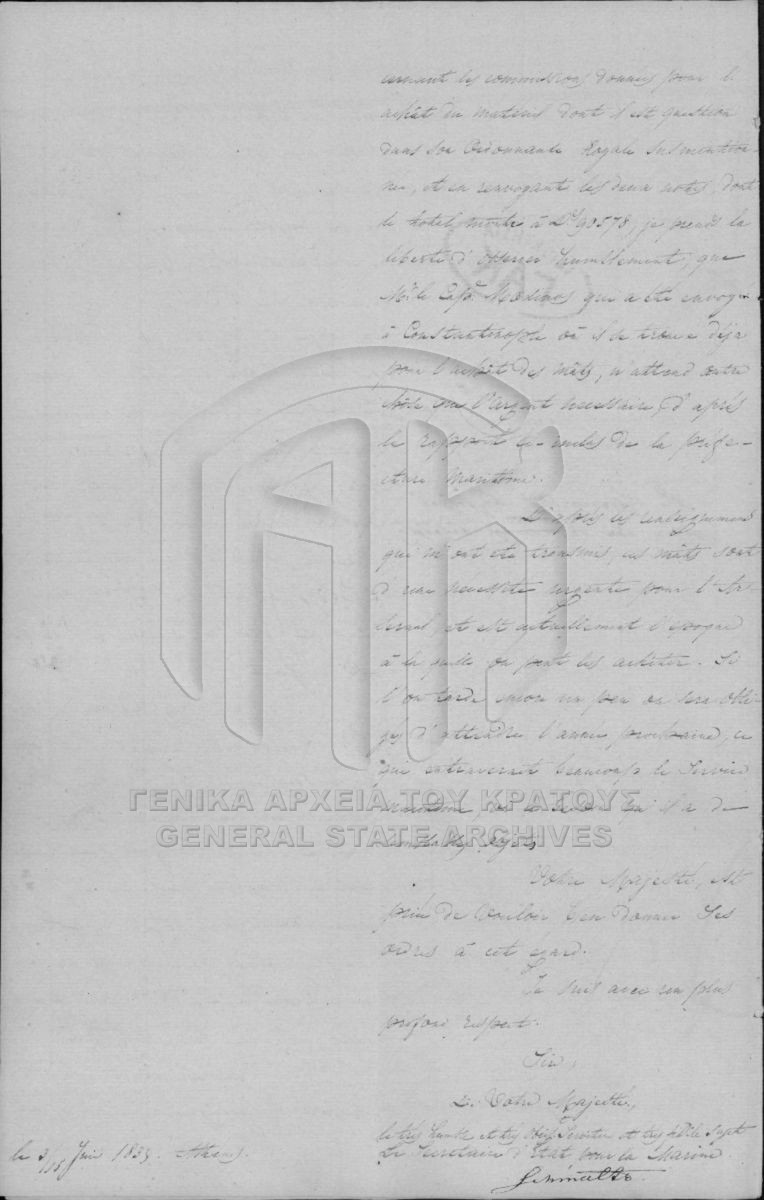 cernant les commissions données pour l'
achat du matériel dont il est question
dans son Ordonnance Royale susmention-
née, et en renvoyant les deux notes, dont
le total monte à Dr. 90578, je prends la
liberté d'observer humblement, que
Mr. le Cap. Madinos qui a été envoyé
à Constantinople où il se trouve déja
pour l'achat des mâts, n'attend
que l'argent nécessaire, d'après
le rapport de la préfe-
cture Maritime.
D'après les renseignements
qui m'ont été transmis, ces mâts sont
d'une necessité urgente pour l'Ar-
senal, et est actuellement l'époque
à la quelle on peut les acheter. Si
l'on tarde encore un peu on sera obli-
gés d'attendre l'année prochaine, ce
qui entraverait beaucoup le Service
ΓΕΝΙΚΑ ΑΡΧΕΙΑ ΤΟΥ ΚΡΑΤΟΥΣ
GENERAL STATE ARCHIVES
Votre Majesté, est
priée de vouloir donner Ses
ordres à cet egard.
Je suis avec un plus
profond respect.
Sire,
De Votre Majesté,
le très humble et très obéisst. Serviteur et très fidèle Sujet
Le Secretaire d'Etat pour la Marine.
le 3/15 Juin 1835. Athènes.
Schmaltz